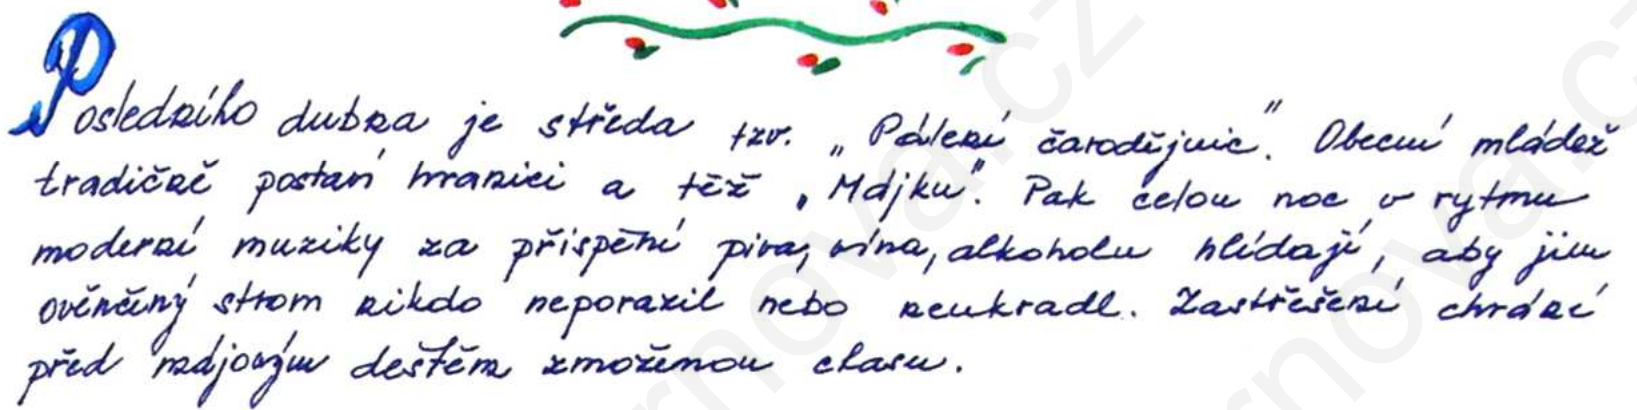 Posledního dubna je středa tzv. „Pálení čarodějnic“. Obecní mládež
tradičně postaví hranici a též „Májku“. Pak celou noc v rytmu
moderní muziky za přispění piva, vína, alkoholu hlídají, aby jim
ověnčený strom nikdo neporazil nebo neukradl. Zastřešení chrání
před májovým deštěm zmoženou chasu.